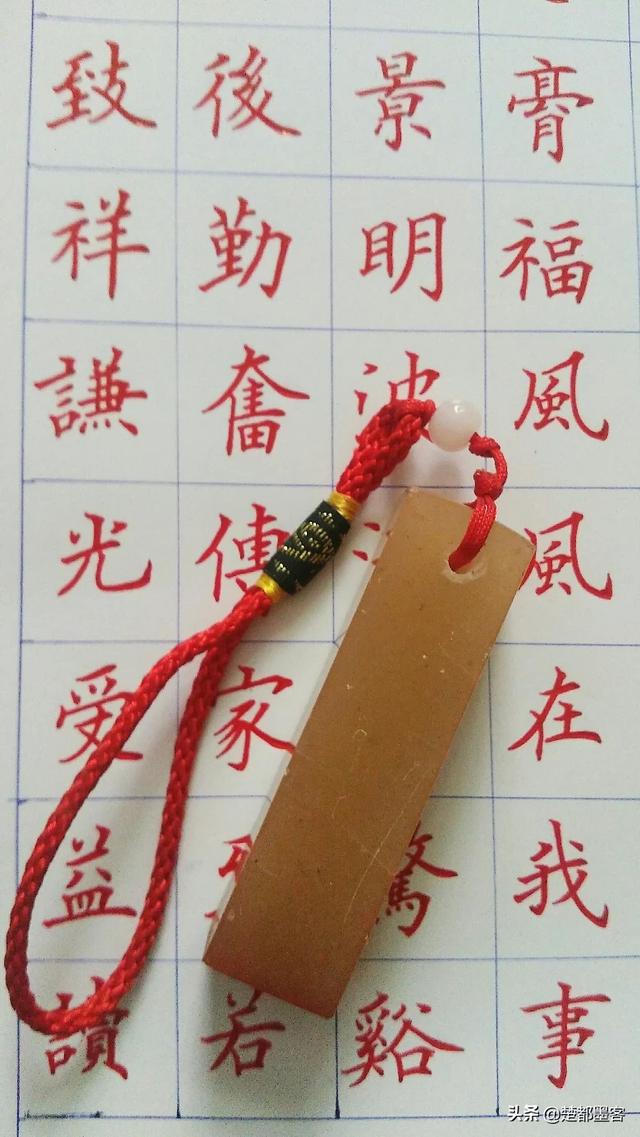 膏福風風在我事
景明波驚谿
後勤奮傳家若
致祥謙光受益讀
头条 @楚都墨客